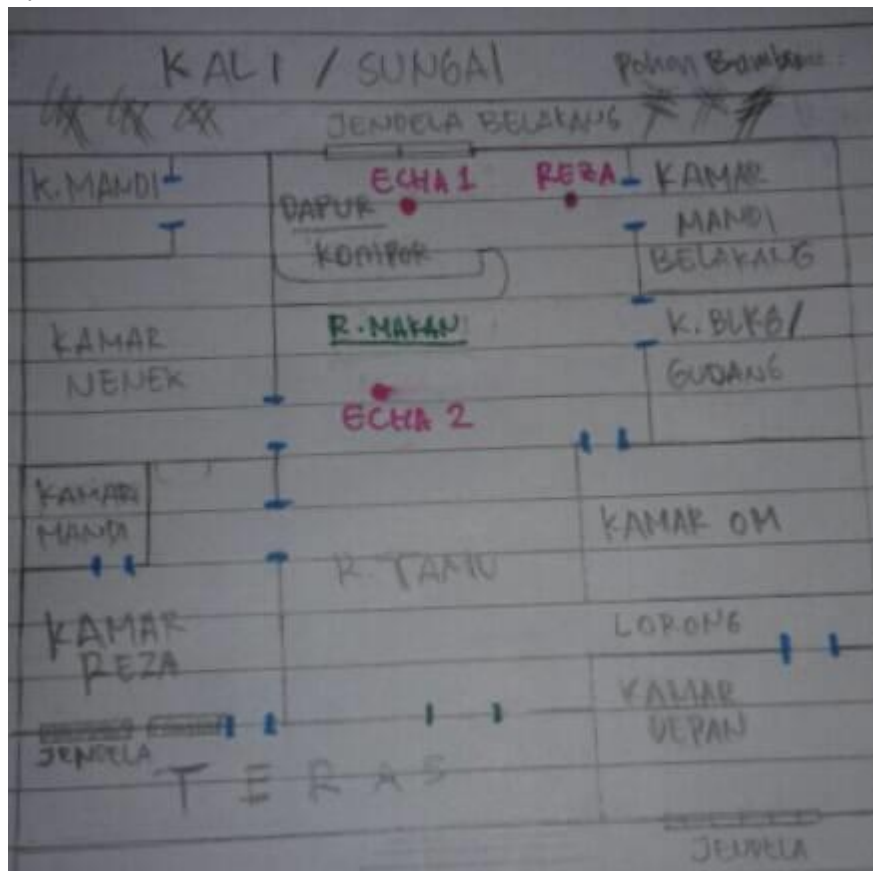 KALI / SUNGAI
Pohon Bambu
JENDELA BELAKANG
K.MANDI
ECHA 1
REZA
KAMAR
MANDI
BELAKANG
DAPUR
KOMPOR
R.MAKAN
K. BLKG/
GUDANG
KAMAR
NENEK
ECHA 2
KAMAR
MANDI
KAMAR OM
R. TAMU
KAMAR
REZA
LORONG
KAMAR
DEPAN
JENDELA
TERAS
JENDELA